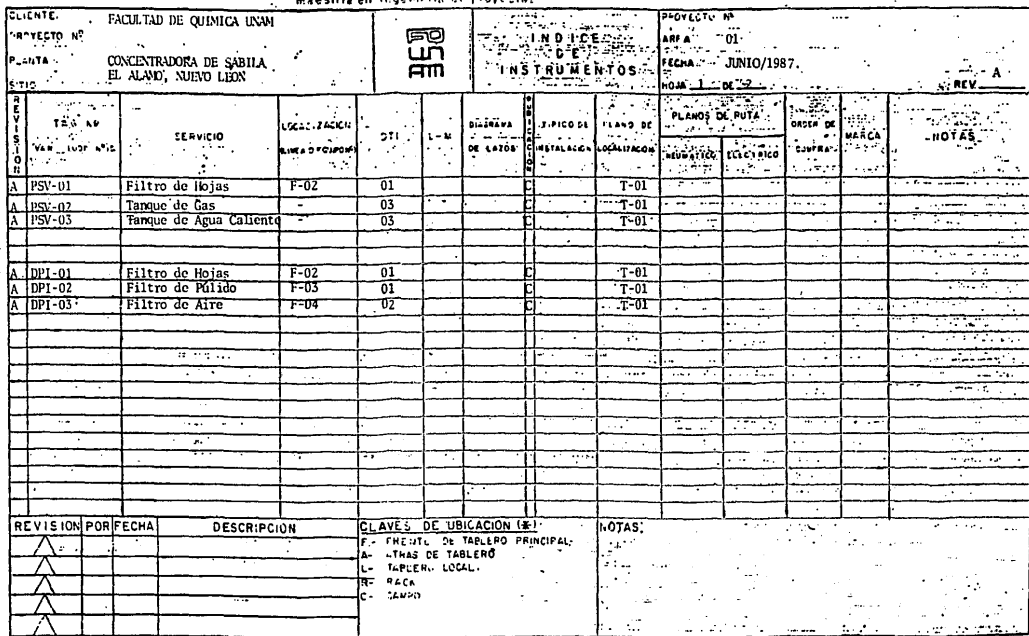 CLIENTE. FACULTAD DE QUIMICA UNAM
PROYECTO Nº
PLANTA CONCENTRADORA DE SABILA
EL ALAMO, NUEVO LEON
SITIO
INDICE
DE
INSTRUMENTOS
PROYECTO Nº
AREA 01
FECHA JUNIO/1987.
HOJA 1 DE 2
REV. A
REVISION
TAG No
SERVICIO
LOCALIZACION
DTI
L-M
DIAGRAMA
DE LAZOS
TIPICO DE
INSTALACION
PLANO DE
LOCALIZACION
PLANOS DE RUTA
NEUMATICO ELECTRICO
ORDEN DE
COMPRA
MARCA
NOTAS
A PSV-01 Filtro de Hojas F-02 01 C T-01
A PSV-02 Tanque de Gas - 03 C T-01
A PSV-03 Tanque de Agua Caliente 03 C T-01
A DPI-01 Filtro de Hojas F-02 01 C T-01
A DPI-02 Filtro de Púlido F-03 01 C T-01
A DPI-03 Filtro de Aire F-04 02 C T-01
REVISION POR FECHA DESCRIPCION
CLAVES DE UBICACION (*)
F.- FRENTE DE TABLERO PRINCIPAL.
A- ATRAS DE TABLERO
L- TABLERO LOCAL.
R- RACK
C- CAMPO
NOTAS: